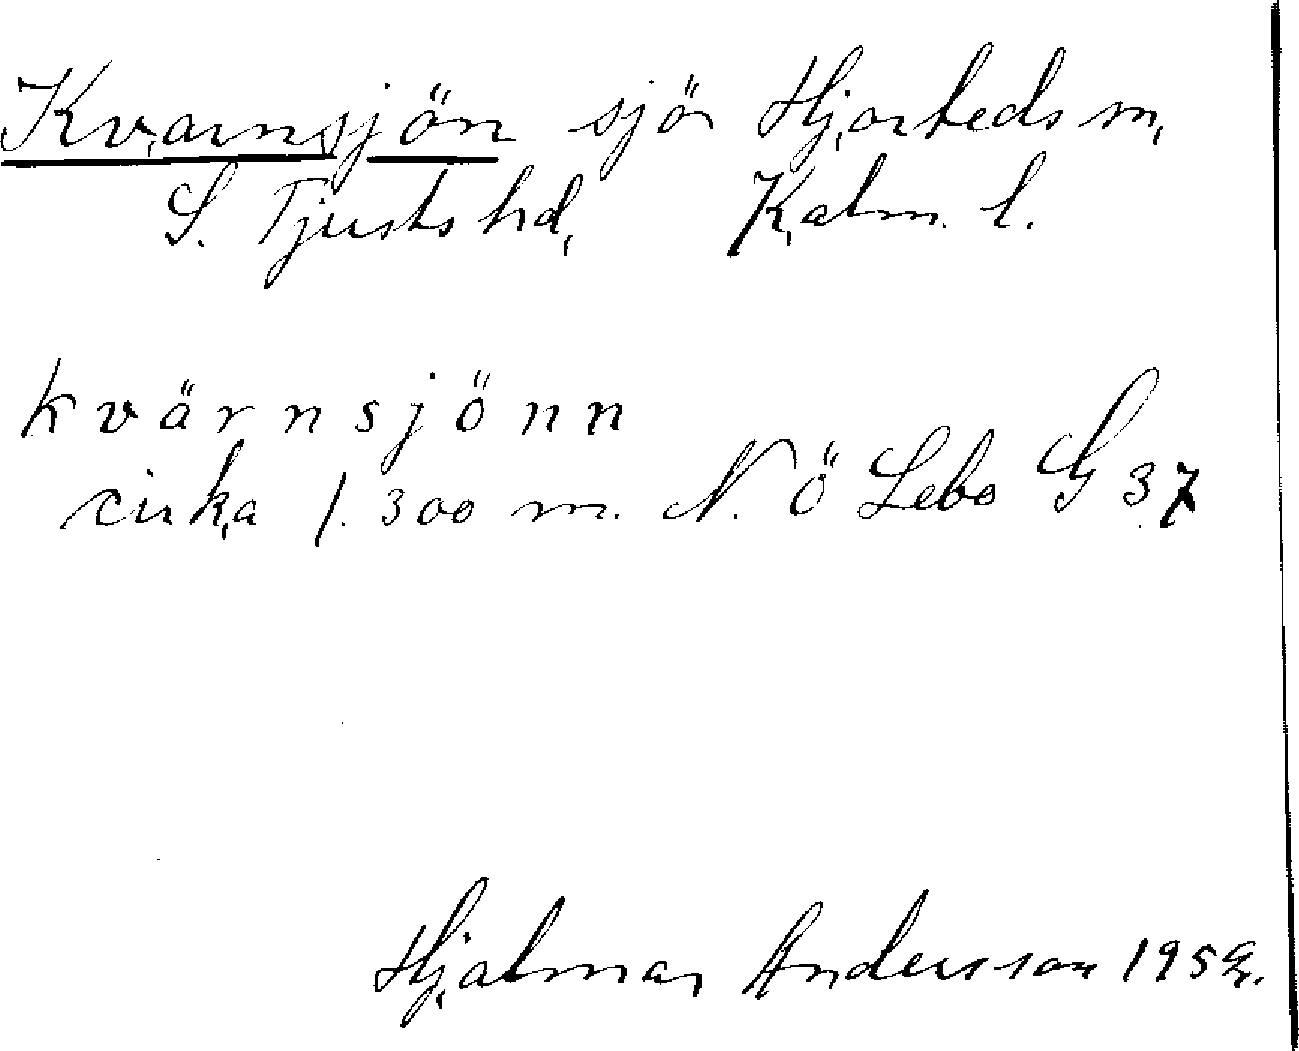 Kvarnsjön sjö Hjorteds sn,
S. Tjusts hd, Kalm. l.
kvärnsjönn
cirka 1.300 m. N. Ö Lebo G 37
Hjalmar Andersson